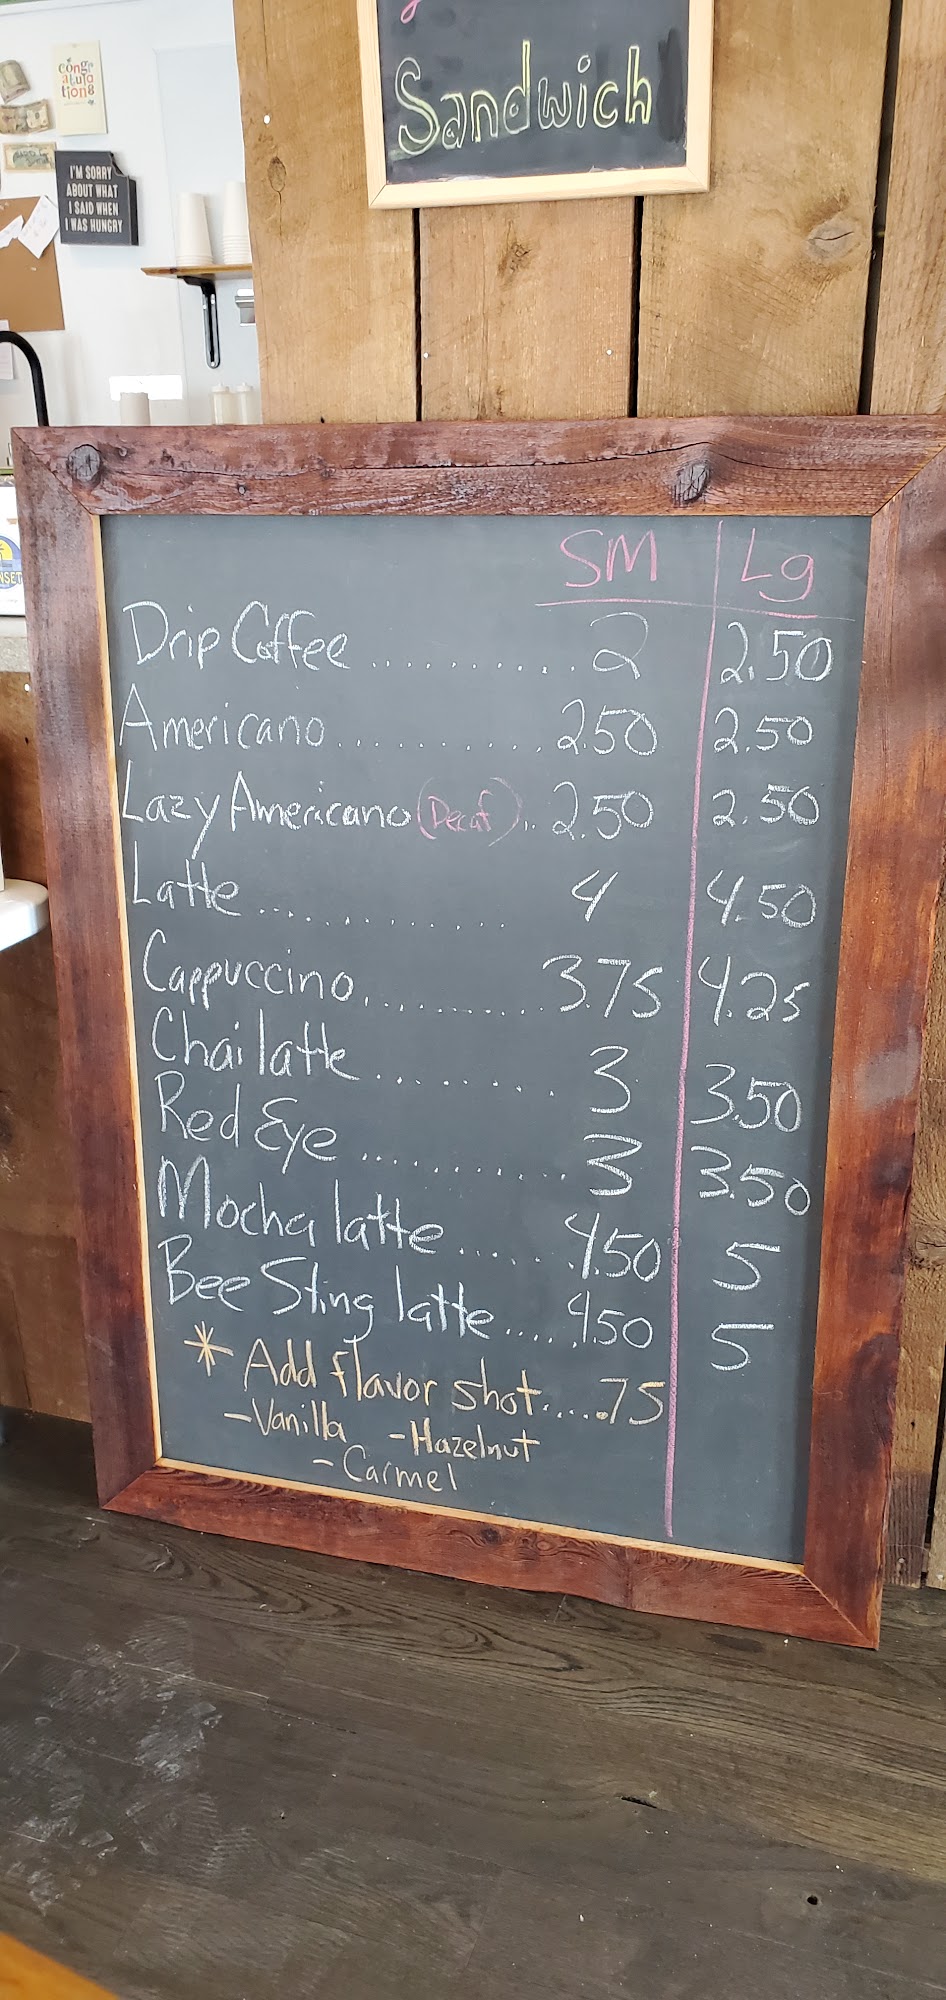 Sandwich
congr
atula
tions
I'M SORRY
ABOUT WHAT
I SAID WHEN
I WAS HUNGRY
SM Lg
Drip Coffee .......... 2 2.50
Americano .......... 2.50 2.50
Lazy Americano (Decaf) .. 2.50 2.50
Latte .......... 4 4.50
Cappuccino .......... 3.75 4.25
Chai latte ........ 3 3.50
Red Eye .......... 3 3.50
Mocha latte ...... 4.50 5
Bee Sting latte .... 4.50 5
* Add flavor shot.... .75
-Vanilla -Hazelnut
-Carmel